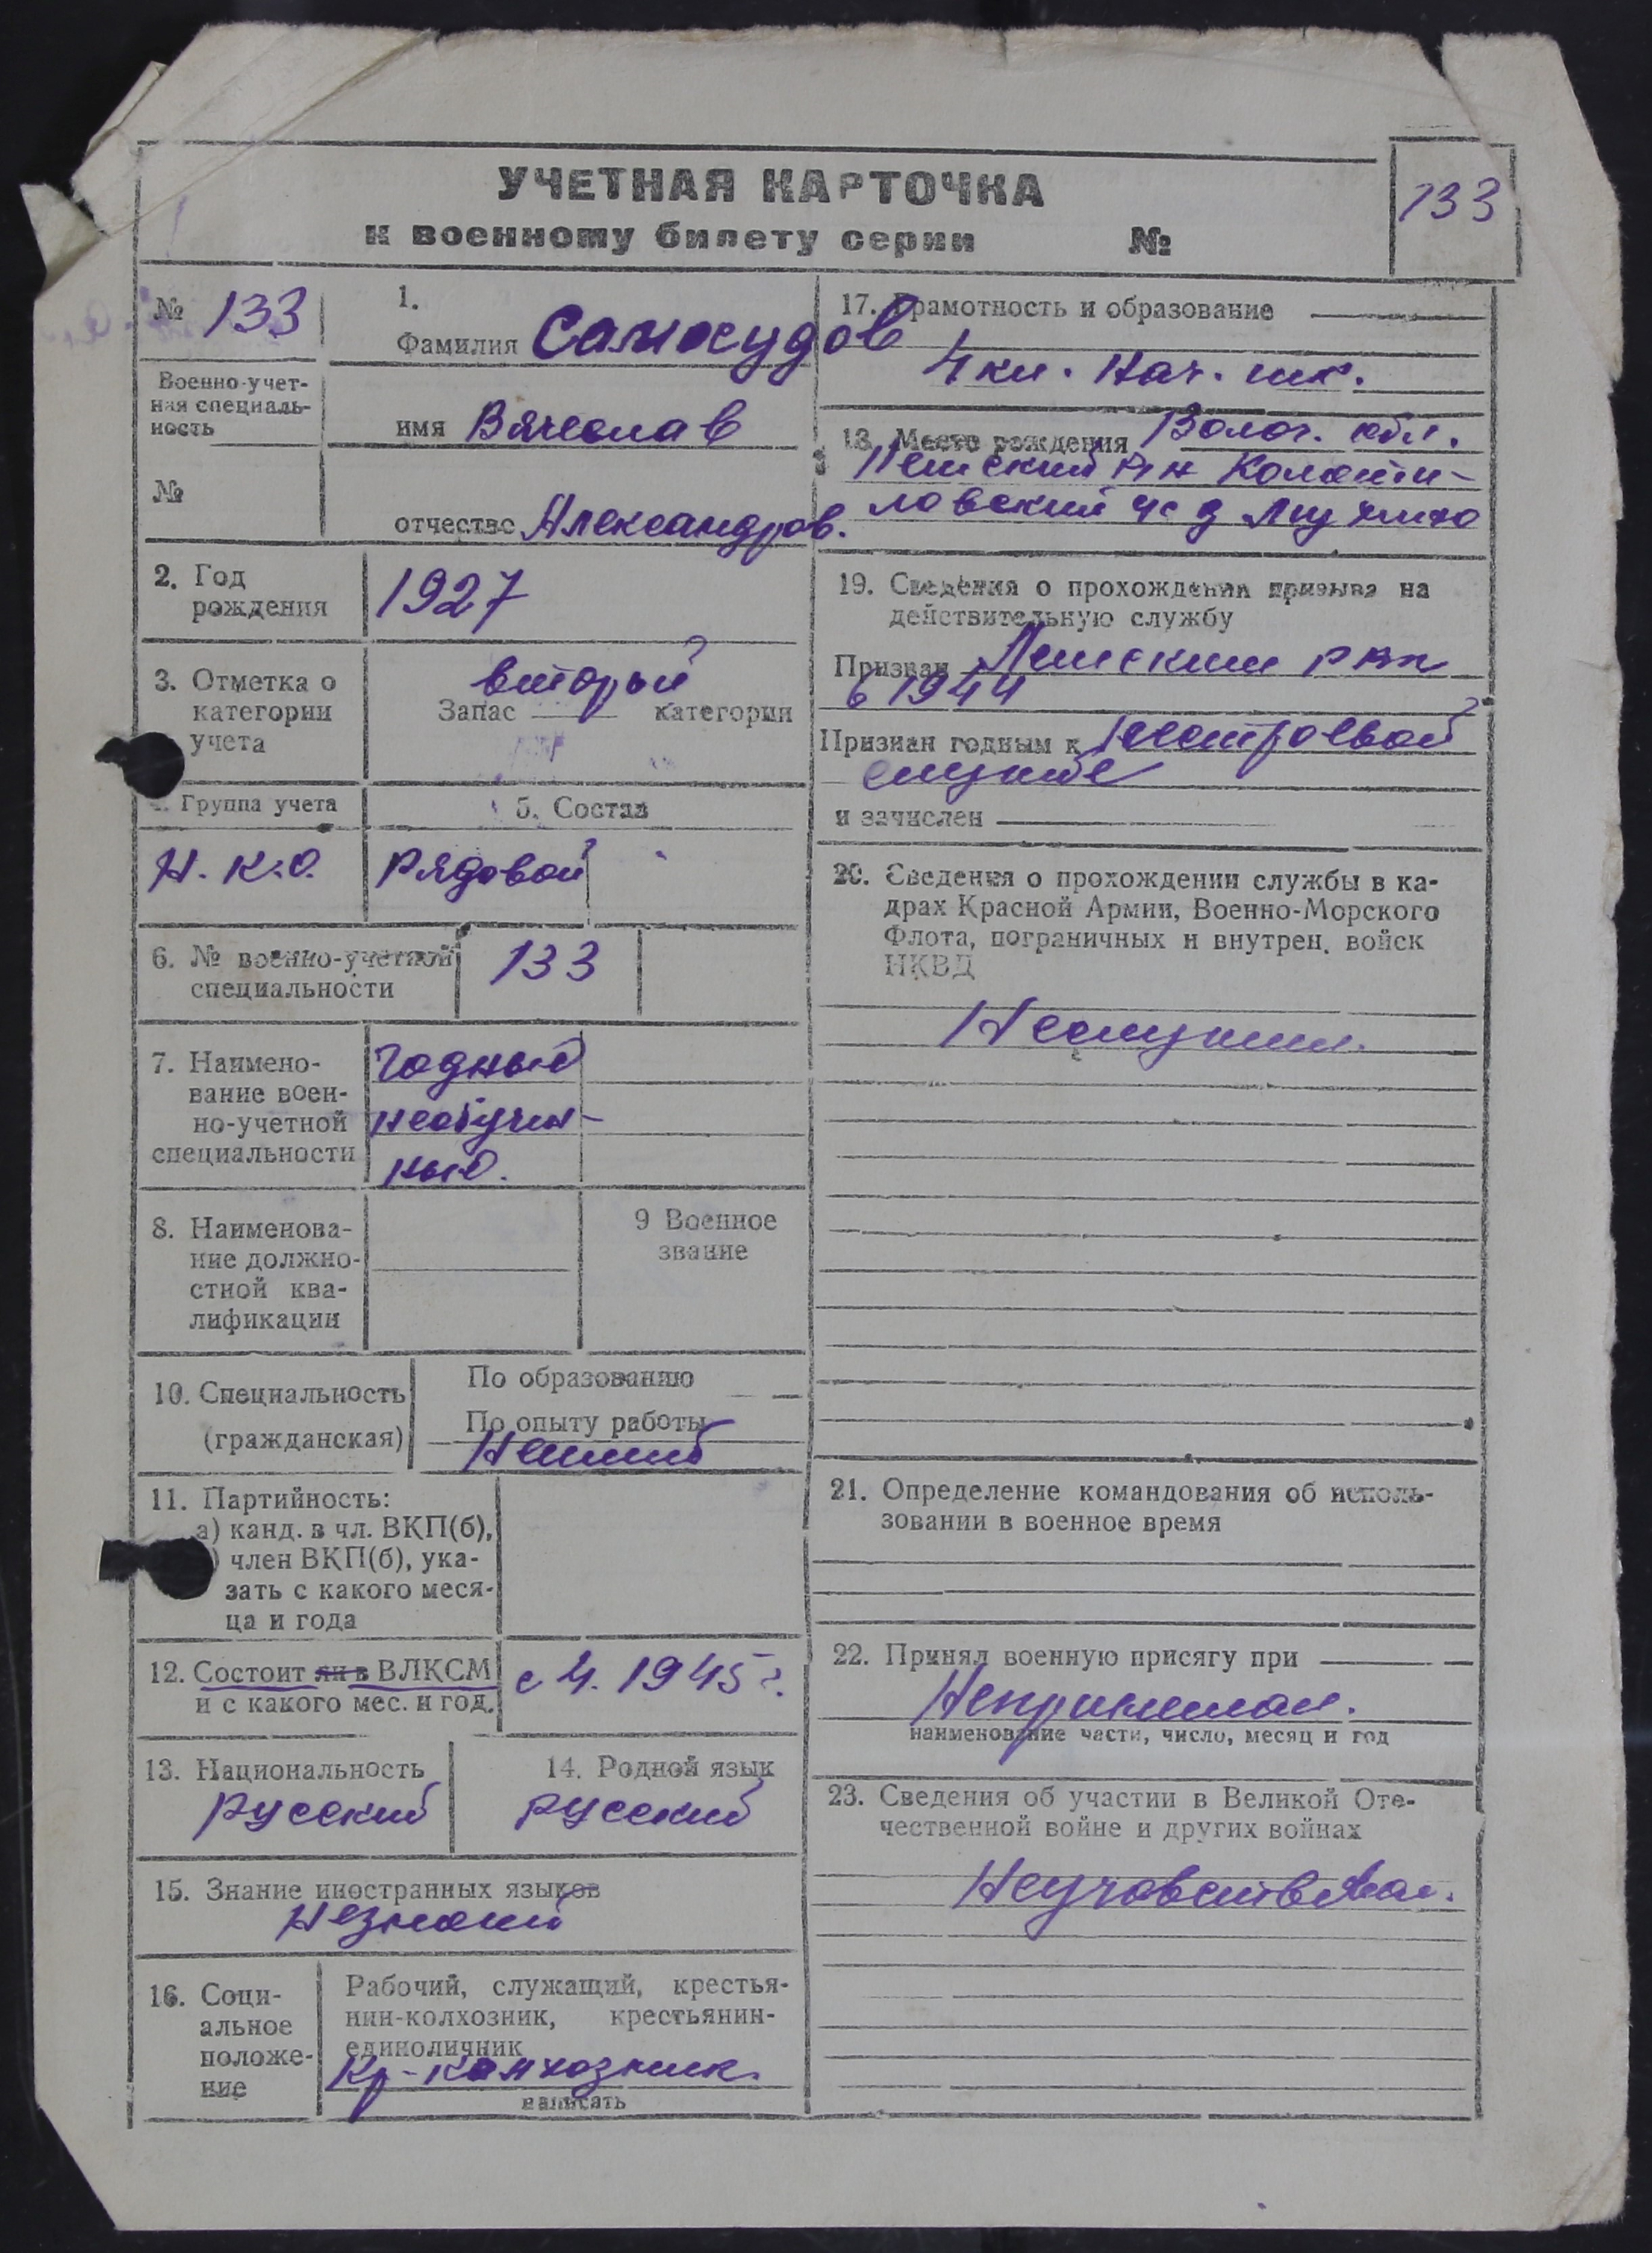 УЧЕТНАЯ КАРТОЧКА
к военному билету серии №
133
№ 133
Военно-учет-
ная специаль-
ность
№
1.
Фамилия Самохудов
имя Вячеслав
отчество Александров.
2. Год
рождения
1927
3. Отметка о
категории
учета
второй
Запас категории
Группа учета
Н.К.О.
5. Состав
Рядовой
6. № военно-учетной
специальности
133
7. Наимено-
вание воен-
но-учетной
специальности
Годный
необучен-
ный.
8. Наименова-
ние должно-
стной ква-
лификации
9 Военное
звание
10. Специальность
(гражданская)
По образованию
По опыту работы
11. Партийность:
а) канд. в чл. ВКП(б),
) член ВКП(б), ука-
зать с какого меся-
ца и года
12. Состоит ли в ВЛКСМ
и с какого мес. и год.
с 4. 1945 г.
13. Национальность
русский
14. Родной язык
русский
15. Знание иностранных языков
16. Соци-
альное
положе-
ние
Рабочий, служащий, крестья-
нин-колхозник, крестьянин-
единоличник
Кр-колхозник.
написать
17. Грамотность и образование
4 кл. Нач. шк.
18. Место рождения Волог. обл.
ловский с д
19. Сведения о прохождении призыва на
действительную службу
Призван рвк
в 1944
Признан годным к нестроевой
службе
и зачислен
20. Сведения о прохождении службы в ка-
драх Красной Армии, Военно-Морского
Флота, пограничных и внутрен. войск
НКВД
Неслужил.
21. Определение командования об исполь-
зовании в военное время
22. Принял военную присягу при
Непринимал.
наименование части, число, месяц и год
23. Сведения об участии в Великой Оте-
чественной войне и других войнах
Неучавствовал.